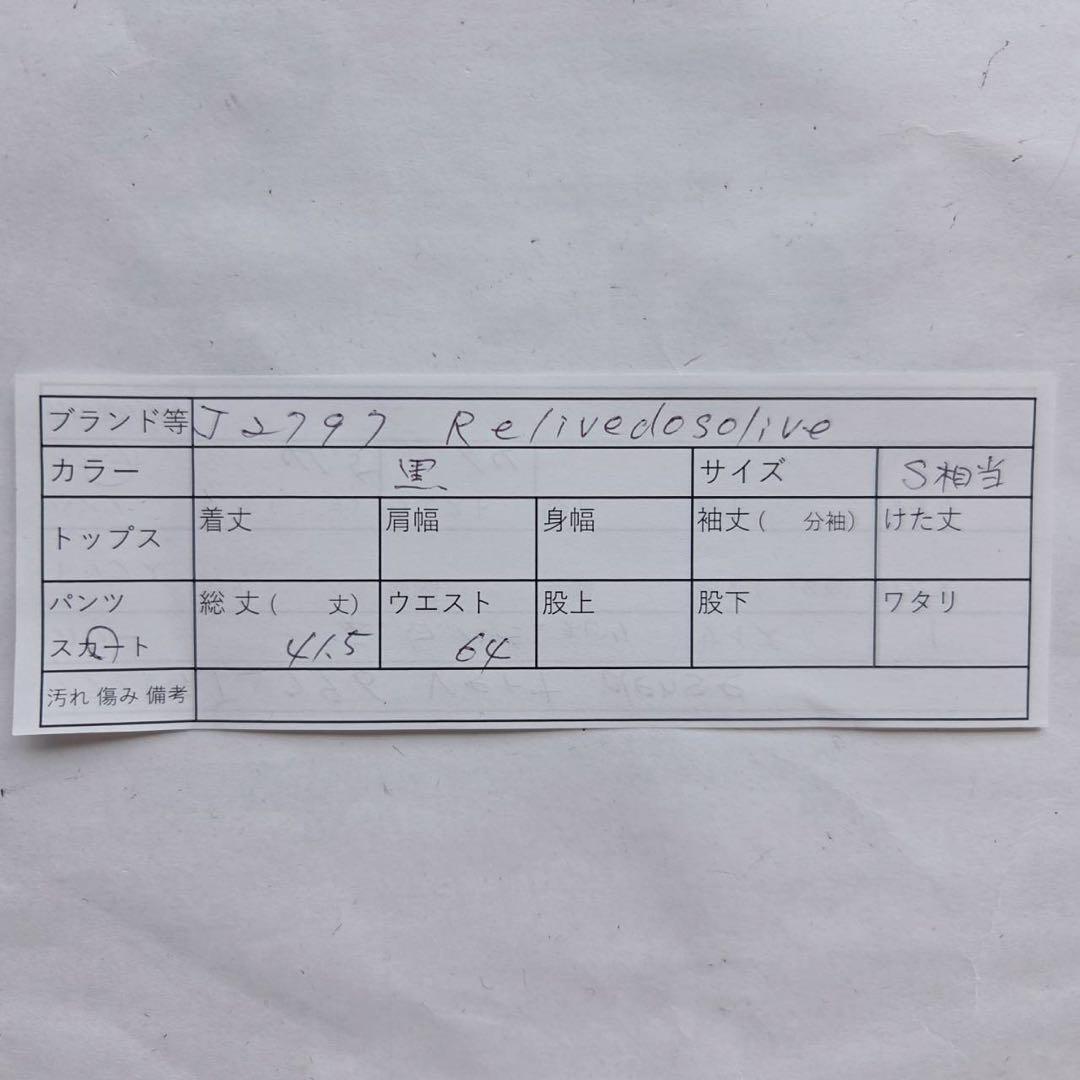 ブランド等 J2797 Relivedosolive
カラー 黒 サイズ S相当
トップス 着丈 肩幅 身幅 袖丈( 分袖) けた丈
パンツ 総丈( 丈) ウエスト 股上 股下 ワタリ
スカート 41.5 64
汚れ 傷み 備考